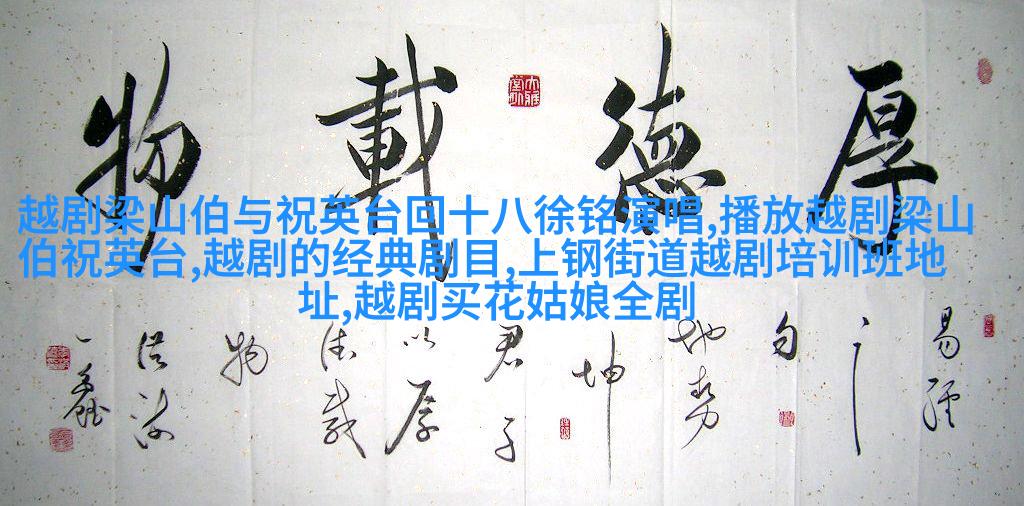 厚德載物
越剧梁山伯与祝英台回十八徐铭演唱,播放越剧梁山
伯祝英台,越剧的经典剧目,上钢街道越剧培训班地
址,越剧买花姑娘全剧
易經
之
句
地勢
坤
君子
以厚
德載
物